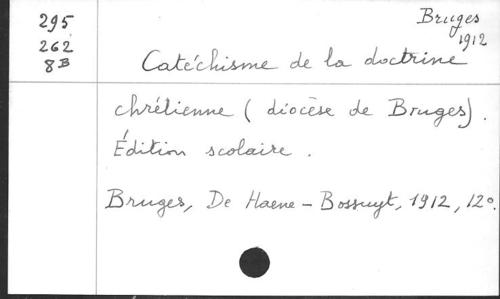 295
262
8B
Bruges
1912
Catéchisme de la doctrine
chrétienne (diocèse de Bruges).
Édition scolaire.
Bruges, De Haene - Bossuyt, 1912, 12°.